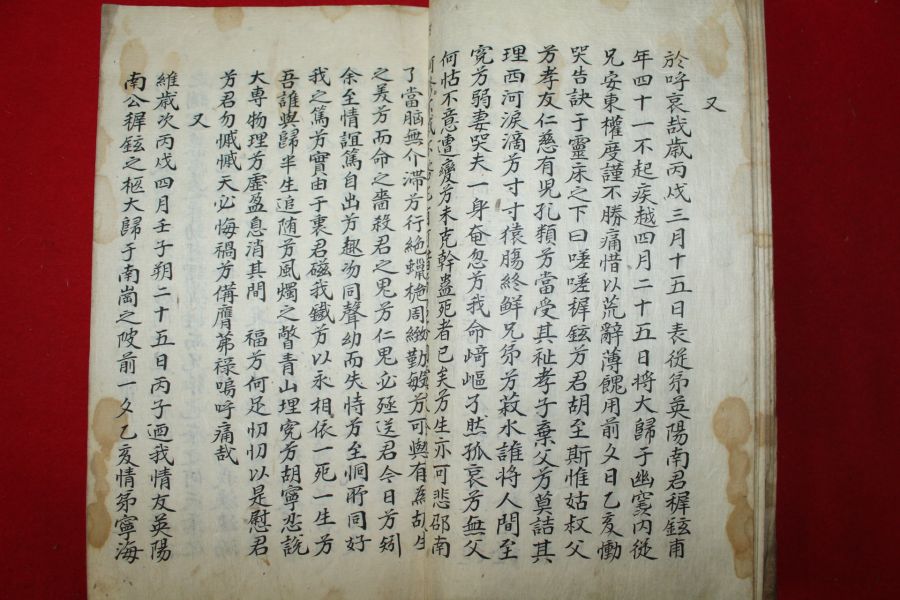 又
於呼哀哉歲丙戌三月十五日表從弟英陽南君穉鉉甫
年四十一不起疾越四月二十五日將大歸于幽穸內從
兄安東權度謹不勝痛惜以荒辭薄餽用前夕日乙亥慟
哭告訣于靈床之下曰嗟嗟穉鉉兮君胡至斯惟姑叔父
兮孝友仁慈有兒孔類兮當受其祉孝子棄父兮莫詰其
理西河淚滴兮寸寸猿膓終鮮兄弟兮菽水誰將人間至
寃兮弱妻哭夫一身奄忽兮我命崎嶇孑然孤哀兮無父
何怙不意遭變兮未克幹蠱死者已矣兮生亦可悲邵南
了當脳無介滯兮行絶蠟梔周緻勤敏兮可與有為胡生
之美兮而命之嗇殺君之鬼兮仁鬼必殛送君今日兮矧
余至情誼篤自出兮趣沕同聲幼而失恃兮至恫所同好
我之篤兮實由于裏君磁我鐵兮以永相依一死一生兮
吾誰與歸半生追随兮風燭之瞥青山埋寃兮胡寧忍說
大專物理兮虛盈息消其間 福兮何足忉忉以是慰君
兮君勿慽慽天必悔禍兮僃膺茀祿嗚呼痛哉
又
維歲次丙戌四月壬子朔二十五日丙子迺我情友英陽
南公穉鉉之柩大歸于南崗之阡前一夕乙亥情弟寧海